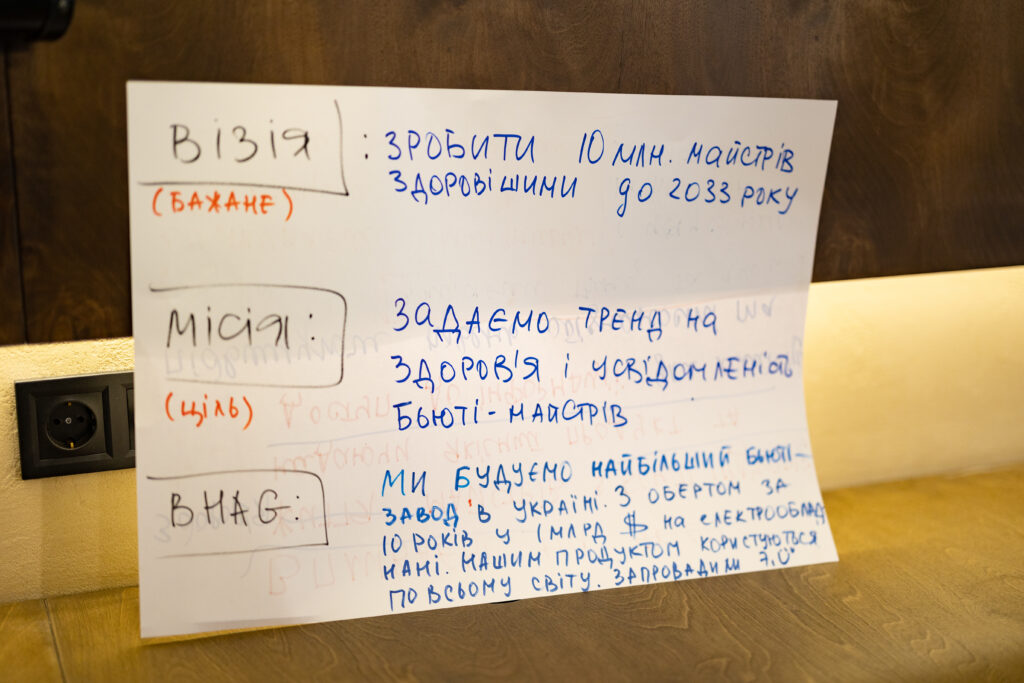 ВІЗІЯ : ЗРОБИТИ 10 МЛН. МАЙСТРІВ
(БАЖАНЕ) ЗДОРОВІШИМИ ДО 2033 РОКУ
МІСІЯ: ЗАДАЄМО ТРЕНД НА
ЗДОРОВ'Я І УСВІДОМЛЕНІСТЬ
(ЦІЛЬ) БЬЮТІ-МАЙСТРІВ
BHAG: МИ БУДУЄМО НАЙБІЛЬШИЙ БЬЮТІ-
ЗАВОД В УКРАЇНІ. З ОБЕРТОМ ЗА
10 РОКІВ У 1 МЛРД $ НА ЕЛЕКТРООБЛАД
НАНІ. НАШИМ ПРОДУКТОМ КОРИСТУЮТЬСЯ
ПО ВСЬОМУ СВІТУ. ЗАПРОВАДИЛИ 7.0"